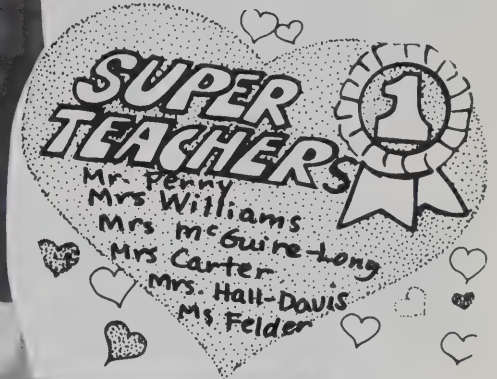 SUPER
TEACHERS
1
Mr. Penny
Mrs Williams
Mrs McGuire-Long
Mrs Carter
Mrs. Hall-Davis
Ms Felder